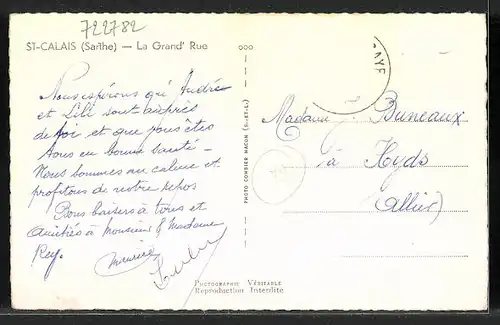 722782
ST-CALAIS (Sarthe) — La Grand' Rue
Nous espérons qu' André
et Lili sont auprès
de toi et que vous êtes
tous en bonne santé -
Nous sommes au calme et
profitons de notre repos
Bons baisers à tous et
Amitiés à Monsieur & Madame
Rey.
Maurice
PHOTO COMBIER MACON (S.-ET-L.)
Madame J. Buneaux
à Hyds
(Allier)
PHOTOGRAPHIE VÉRITABLE
Reproduction Interdite